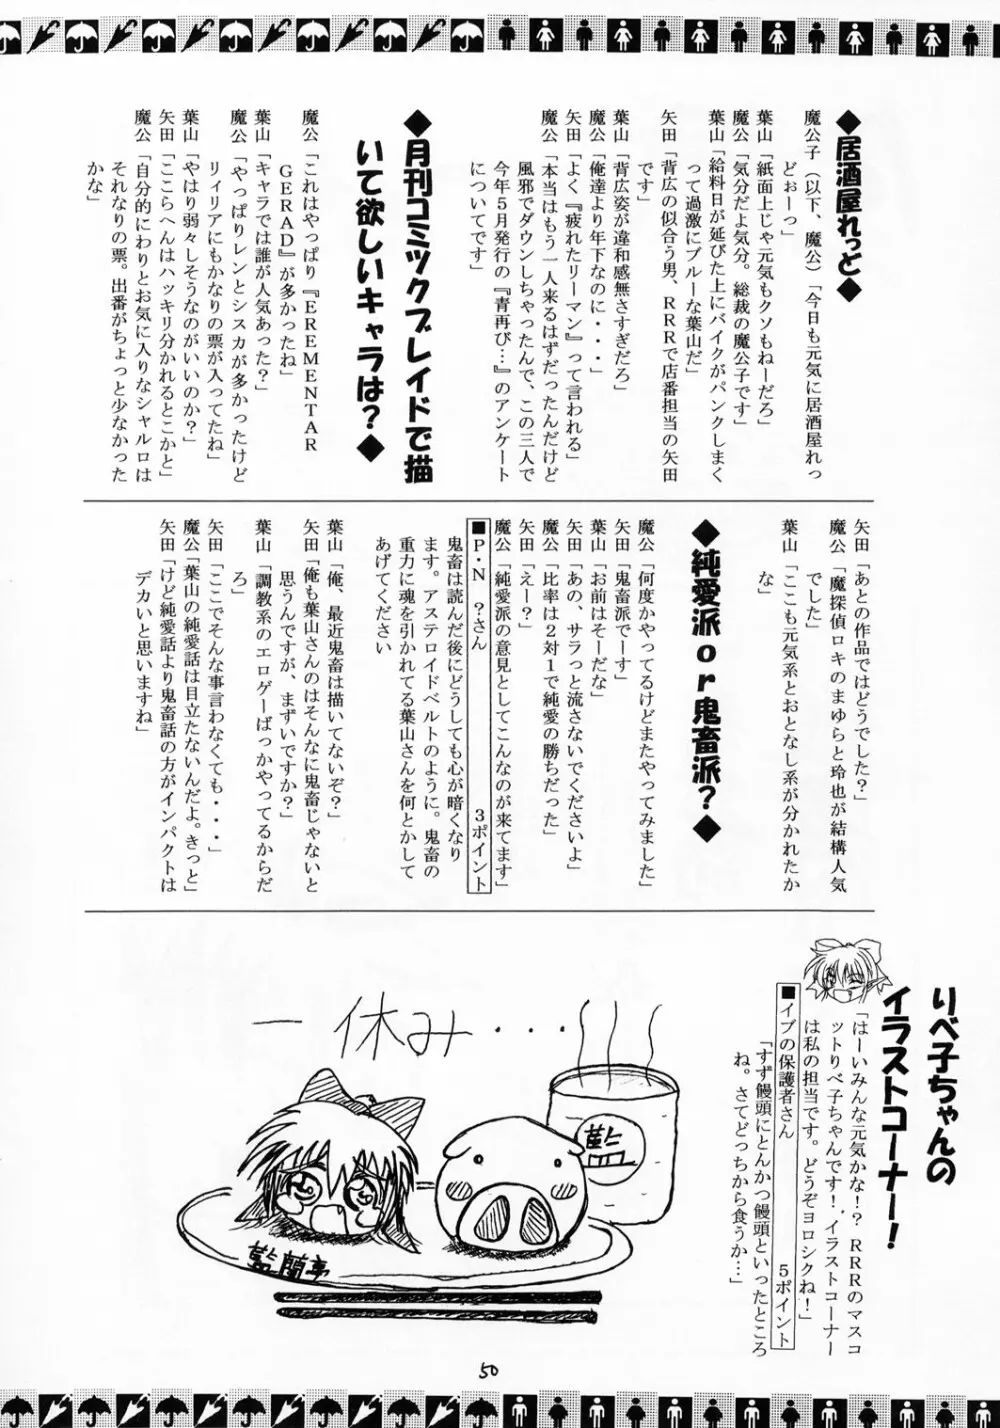 ◆居酒屋れっど◆
魔公子（以下、魔公）「今日も元気に居酒屋れっ
どぉーっ」
葉山「紙面上じゃ元気もクソもねーだろ」
魔公「気分だよ気分。総裁の魔公子です」
葉山「給料日が延びた上にバイクがパンクしまく
って過激にブルーな葉山だ」
矢田「背広の似合う男、ＲＲＲで店番担当の矢田
です」
葉山「背広姿が違和感無さすぎだろ」
魔公「俺達より年下なのに・・・」
矢田「よく『疲れたリーマン』って言われる」
魔公「本当はもう一人来るはずだったんだけど
風邪でダウンしちゃったんで、この三人で
今年５月発行の『青再び…』のアンケート
についてです」
◆月刊コミックブレイドで描
いて欲しいキャラは？◆
魔公「これはやっぱり『ＥＲＥＭＥＮＴＡＲ
ＧＥＲＡＤ』が多かったね」
葉山「キャラでは誰が人気あった？」
魔公「やっぱりレンとシスカが多かったけど
リィリアにもかなりの票が入ってたね」
葉山「やはり弱々しそうなのがいいのか？」
矢田「ここらへんはハッキリ分かれるとこかと」
魔公「自分的にわりとお気に入りなシャルロは
それなりの票。出番がちょっと少なかった
かな」
矢田「あとの作品ではどうでした？」
魔公「魔探偵ロキのまゆらと玲也が結構人気
でした」
葉山「ここも元気系とおとなし系が分かれたか
な」
◆純愛派ｏｒ鬼畜派？◆
魔公「何度かやってるけどまたやってみました」
矢田「鬼畜派でーす」
葉山「お前はそーだな」
矢田「あの、サラっと流さないでくださいよ」
魔公「比率は２対１で純愛の勝ちだった」
矢田「えー？」
魔公「純愛派の意見としてこんなのが来てます」
■Ｐ・Ｎ　？さん　３ポイント
鬼畜は読んだ後にどうしても心が暗くなり
ます。アステロイドベルトのように。鬼畜の
重力に魂を引かれてる葉山さんを何とかして
あげてください
葉山「俺、最近鬼畜は描いてないぞ？」
矢田「俺も葉山さんのはそんなに鬼畜じゃないと
思うんですが、まずいですか？」
葉山「調教系のエロゲーばっかやってるからだ
ろ」
矢田「ここでそんな事言わなくても・・・」
魔公「葉山の純愛話は目立たないんだよ。きっと」
矢田「けど純愛話より鬼畜話の方がインパクトは
デカいと思いますね」
りべ子ちゃんの
イラストコーナー！
「はーいみんな元気かな！？　ＲＲＲのマスコ
ットりべ子ちゃんです！．イラストコーナー
は私の担当です。どうぞヨロシクね！」
■イブの保護者さん　５ポイント
「すず饅頭にとんかつ饅頭といったところ
ね。さてどっちから食うか…」
一休み・・・
藍
藍蘭亭
50